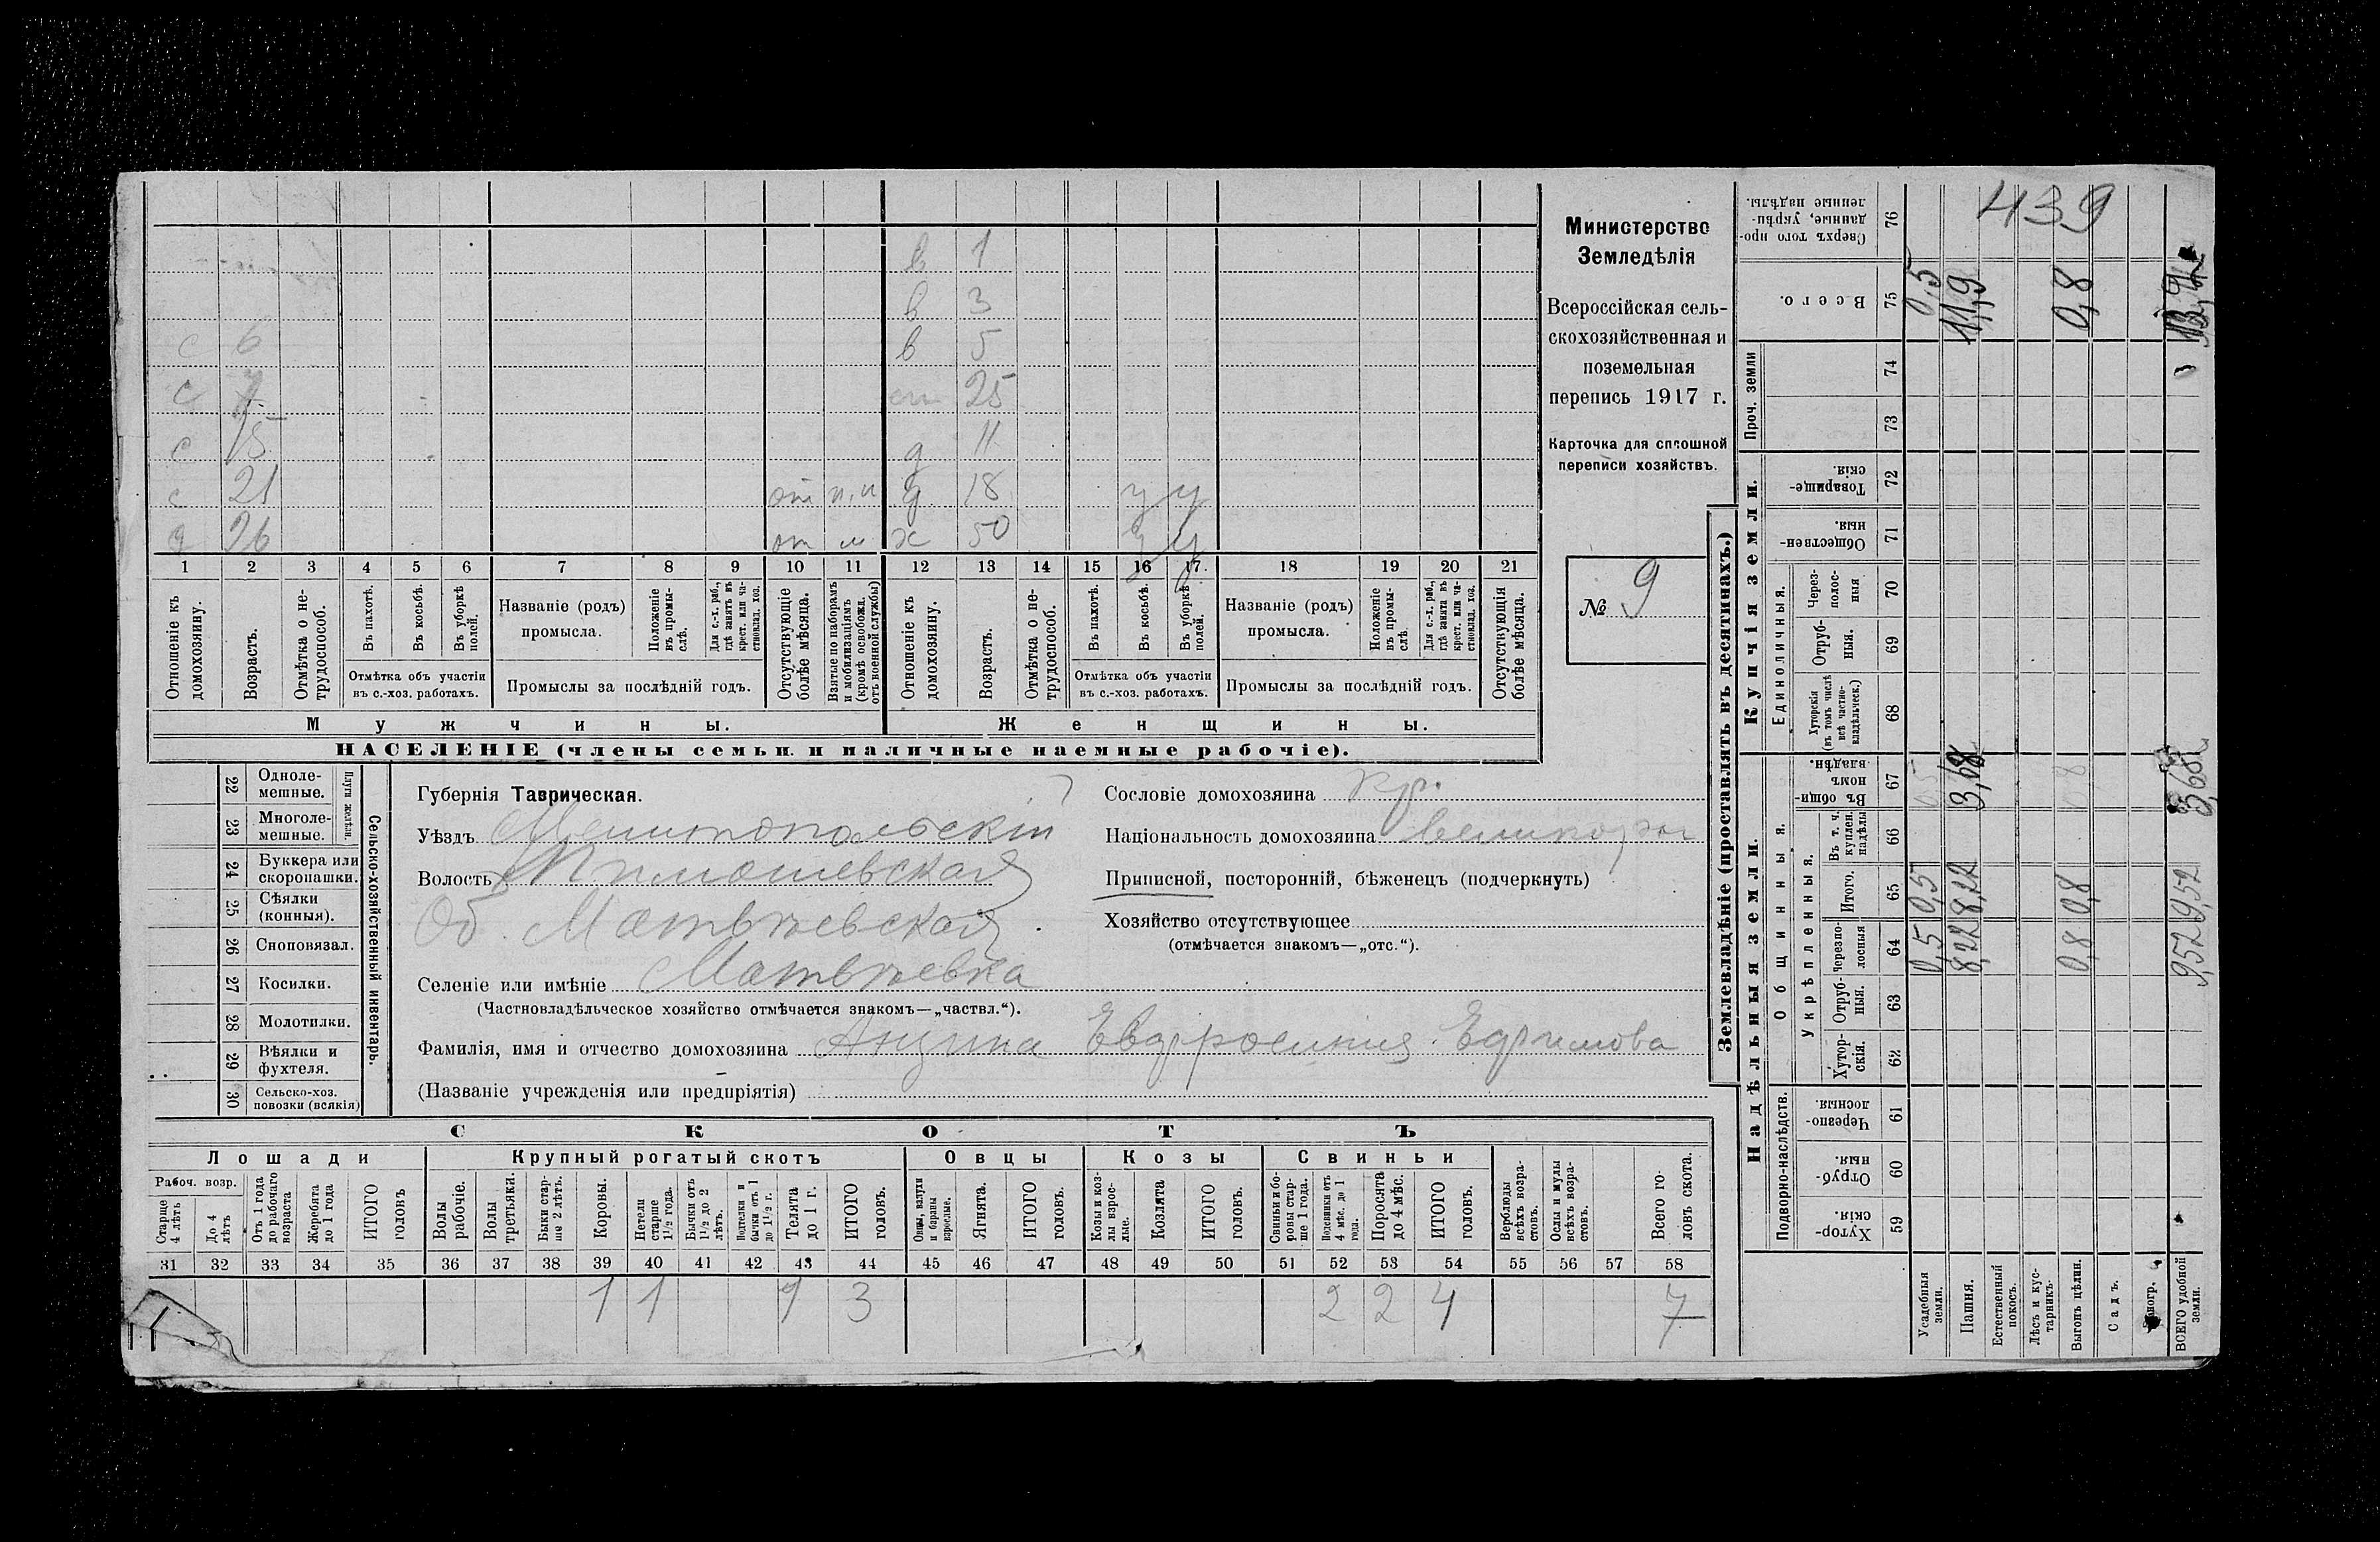 в 1
в 3
с 6 в 5
с 7 25
с 15 д 11
с 21 от д 18 у у
26 от м х 50 у у
1 2 3 4 5 6 7 8 9 10 11 12 13 14 15 16 17 18 19 20 21
Отношеніе къ домохозяину.
Возрастъ.
Отмѣтка о нетрудоспособ.
Въ пахотѣ.
Въ косьбѣ.
Въ уборкѣ полей.
Отмѣтка объ участіи въ с.-хоз. работахъ.
Названіе (родъ) промысла.
Положеніе въ промыслѣ.
Для с.-х. раб., гдѣ занятъ въ крест. или частновлад. хоз.
Промыслы за послѣдній годъ.
Отсутствующіе болѣе мѣсяца.
Взятые по наборамъ и мобилизаціямъ (кромѣ освобожд. отъ военной службы)
Отношеніе къ домохозяину.
Возрастъ.
Отмѣтка о нетрудоспособ.
Въ пахотѣ.
Въ косьбѣ.
Въ уборкѣ полей.
Отмѣтка объ участіи въ с.-хоз. работахъ.
Названіе (родъ) промысла.
Положеніе въ промыслѣ.
Для с.-х. раб., гдѣ занята въ крест. или частновлад. хоз.
Промыслы за послѣдній годъ.
Отсутствующія болѣе мѣсяца.
Мужчины. Женщины.
НАСЕЛЕНІЕ (члены семьи и наличные наемные рабочіе).
Министерство
Земледѣлія
Всероссійская сель-
скохозяйственная и
поземельная
перепись 1917 г.
Карточка для сплошной
переписи хозяйствъ.
№ 9
22 Одноле-мешные.
23 Многоле-мешные.
Плуги желѣзн.
24 Буккера или скоропашки.
25 Сѣялки (конныя).
26 Сноповязал.
27 Косилки.
28 Молотилки.
29 Вѣялки и фухтеля.
30 Сельско-хоз. повозки (всякія)
Сельско-хозяйственный инвентарь.
Губернія Таврическая.
Уѣздъ Мелитопольскій
Волость Тимошевская
Об. Матвѣевская
Селеніе или имѣніе Матвѣевка
(Частновладѣльческое хозяйство отмѣчается знакомъ—„частвл.“).
Фамилія, имя и отчество домохозяина Анцупа Евфросинія Ефимова
(Названіе учрежденія или предпріятія)
Сословіе домохозяина кр.
Національность домохозяина великорос
Приписной, посторонній, бѣженецъ (подчеркнуть)
Хозяйство отсутствующее
(отмѣчается знакомъ—„отс.“).
СКОТЪ
Лошади Крупный рогатый скотъ Овцы Козы Свиньи
Рабоч. возр.
Старше 4 лѣтъ
До 4 лѣтъ
Отъ 1 года до рабочаго возраста
Жеребята до 1 года
ИТОГО головъ
Волы рабочіе.
Волы третьяки.
Быки старше 2 лѣтъ.
Коровы.
Нетели старше 1½ года.
Бычки отъ 1½ до 2 лѣтъ.
Подтелки и бычки отъ 1 до 1½ г.
Телята до 1 г.
ИТОГО головъ.
Овцы, валухи и бараны взрослые.
Ягнята.
ИТОГО головъ.
Козы и козлы взрослые.
Козлята
ИТОГО головъ.
Свиньи и боровы старше 1 года.
Подсвинки отъ 4 мѣс. до 1 года.
Поросята до 4 мѣс.
ИТОГО головъ.
Верблюды всѣхъ возрастовъ.
Ослы и мулы всѣхъ возрастовъ.
Всего головъ скота.
31 32 33 34 35 36 37 38 39 40 41 42 43 44 45 46 47 48 49 50 51 52 53 54 55 56 57 58
1 1 1 3 2 2 4 7
Землевладѣніе (проставлять въ десятинахъ.)
Надѣльныя земли.
Купчія земли.
Проч. земли
Подворно-наслѣдств.
Общинныя.
Укрѣпленныя.
Единоличныя.
Хуторскія. 59
Отрубныя. 60
Черезполосныя. 61
Хуторскія. 62
Отрубныя. 63
Черезполосныя 64
Итого. 65
Въ т. ч. куплен. надѣлы 66
Въ общинномъ владѣн. 67
Хуторскія (въ томъ числѣ всѣ частновладѣльческ.) 68
Отрубныя. 69
Черезполосныя 70
Общественныя. 71
Товарищескія. 72
73
74
Всего. 75
Сверхъ того проданные, укрѣпленные надѣлы. 76
439
Усадебныя земли. 0,5 0,5 0,5
Пашня. 8,22 8,22 3,68 11,9
Естественный покосъ.
Лѣсъ и кустарникъ.
Выгонъ цѣлин. 0,8 0,8 0,8
Садъ.
ВСЕГО удобной земли. 9,52 9,52 3,68